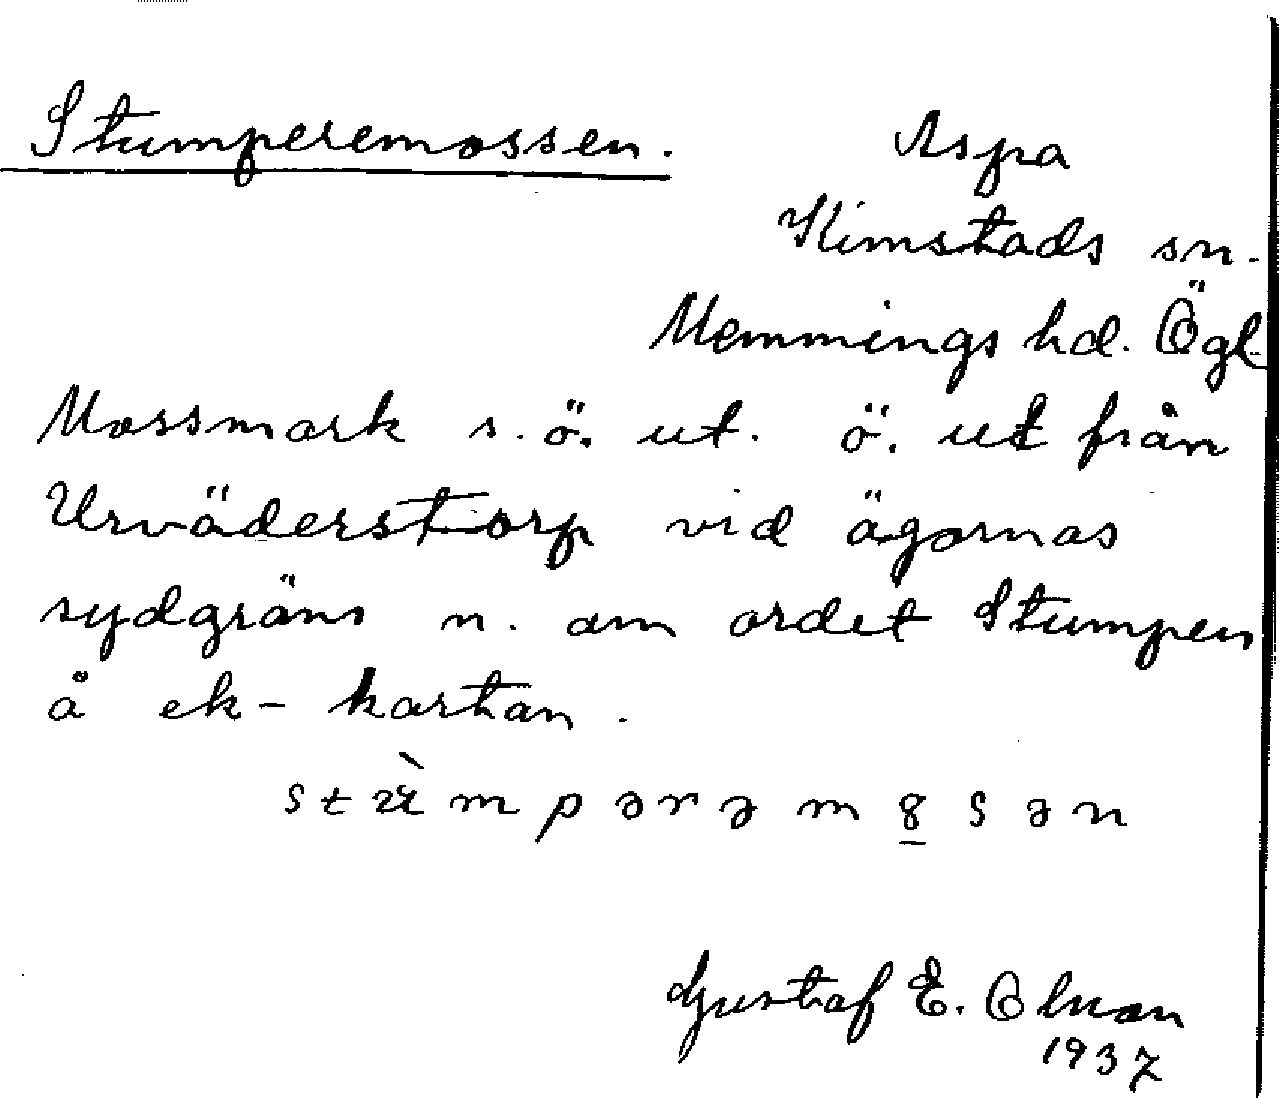 Stumperemossen.
Aspa
Kimstads sn.
Memmings hd. Ögl.
Mossmark s. ö. ut. ö. ut från
Urväderstorp vid ägornas
sydgräns n. om ordet Stumpen
å ek-kartan.
Gustaf E. Olsson
1937